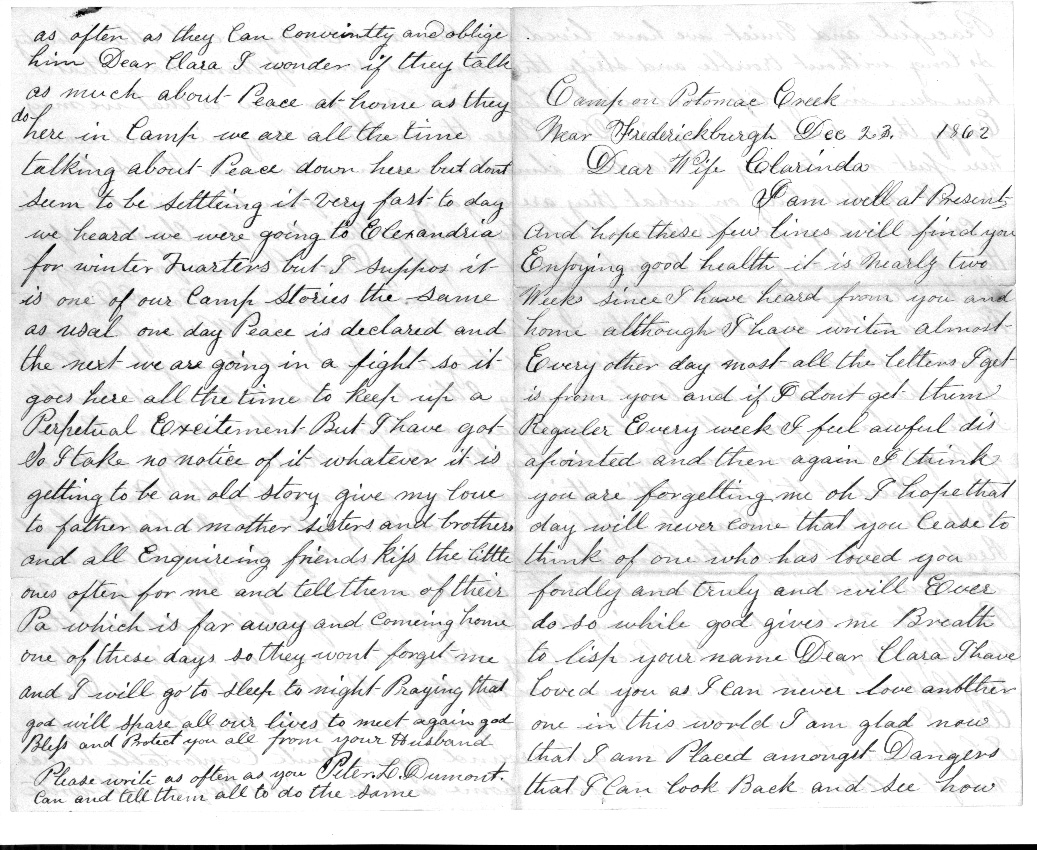 as often as they Can Conviently and oblige
him Dear Clara I wonder if they talk
as much about Peace at home as they
do here in Camp we are all the time
talking about Peace down here but dont
seem to be settleing it very fast to day
we heard we were going to Elexandria
for winter Quarters but I suppos it
is one of our Camp stories the same
as usal one day Peace is declared and
the next we are going in a fight so it
goes here all the time to keep up a
Perpetual Excitement But I have got
so I take no notice of it whatever it is
getting to be an old story give my love
to father and mother sisters and brothers
and all Enquireing friends kiss the little
ones often for me and tell them of their
Pa which is far away and Comeing home
one of these days so they wont forget me
and I will go to sleep to night Praying that
god will spare all our lives to meet again god
Bless and Protect you all from your Husband
Peter L. Dumont.
Please write as often as you
Can and tell them all to do the same
Camp on Potomac Creek
Near Frederickburgh Dec 23. 1862
Dear Wife Clarinda
I am well at Present
And hope these few lines will find you
Enjoying good health it is nearly two
Weeks since I have heard from you and
home although I have writen almost
Every other day most all the letters I get
is from you and if I dont get them
Reguler Every week I feel awful dis
apointed and then again I think
you are forgetting me oh I hope that
day will never come that you Cease to
think of one who has loved you
fondly and truly and will Ever
do so while god gives me Breath
to lisp your name Dear Clara I have
loved you as I can never love another
one in this world I am glad now
that I am Placed amongst Dangers
that I Can look Back and see how